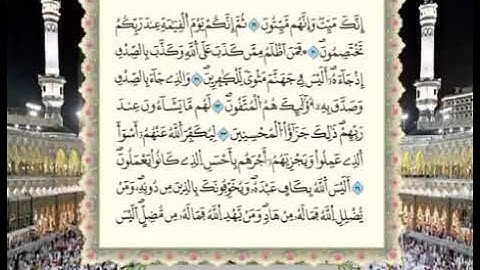 إِنَّكَ مَيِّتٌ وَإِنَّهُم مَّيِّتُونَ ۝ ثُمَّ إِنَّكُمْ يَوْمَ ٱلْقِيَٰمَةِ عِندَ رَبِّكُمْ
تَخْتَصِمُونَ ۝ فَمَنْ أَظْلَمُ مِمَّن كَذَبَ عَلَى ٱللَّهِ وَكَذَّبَ بِٱلصِّدْقِ
إِذْ جَآءَهُۥٓ أَلَيْسَ فِى جَهَنَّمَ مَثْوًى لِّلْكَٰفِرِينَ ۝ وَٱلَّذِى جَآءَ بِٱلصِّدْقِ
وَصَدَّقَ بِهِۦٓ أُو۟لَٰٓئِكَ هُمُ ٱلْمُتَّقُونَ ۝ لَهُم مَّا يَشَآءُونَ عِندَ
رَبِّهِمْ ذَٰلِكَ جَزَٰٓؤُا۟ ٱلْمُحْسِنِينَ ۝ لِيُكَفِّرَ ٱللَّهُ عَنْهُمْ أَسْوَأَ
ٱلَّذِى عَمِلُوا۟ وَيَجْزِيَهُمْ أَجْرَهُم بِأَحْسَنِ ٱلَّذِى كَانُوا۟ يَعْمَلُونَ
۝ أَلَيْسَ ٱللَّهُ بِكَافٍ عَبْدَهُۥ وَيُخَوِّفُونَكَ بِٱلَّذِينَ مِن دُونِهِۦ وَمَن
يُضْلِلِ ٱللَّهُ فَمَا لَهُۥ مِنْ هَادٍ وَمَن يَهْدِ ٱللَّهُ فَمَا لَهُۥ مِن مُّضِلٍّ أَلَيْسَ